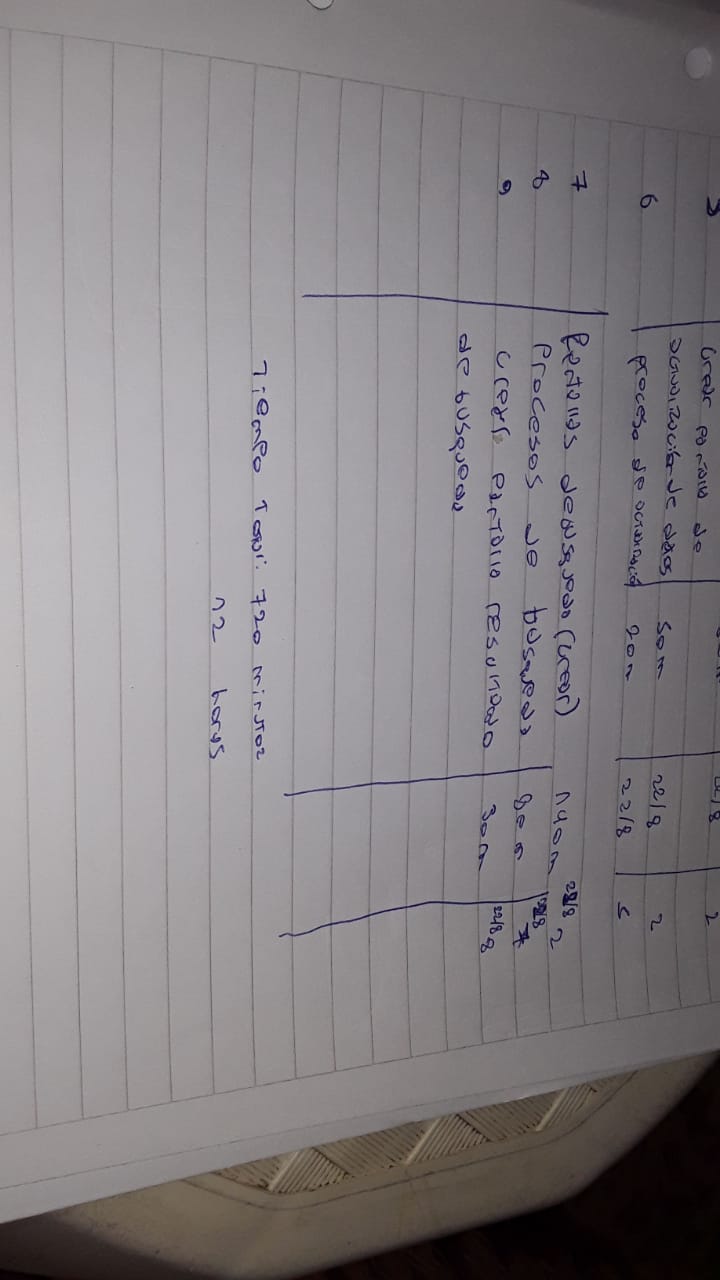 5 Crear pantalla de 22/8 2
actualización de datos 50m 22/8 2
6 proceso de actualización 20m 22/8 5
7 Pantallas de búsqueda (crear) 140m 2
8 Procesos de búsqueda 80m
9 crear pantalla resultado 30m 22/8 8
de búsqueda
Tiempo Total: 720 minutos
12 horas